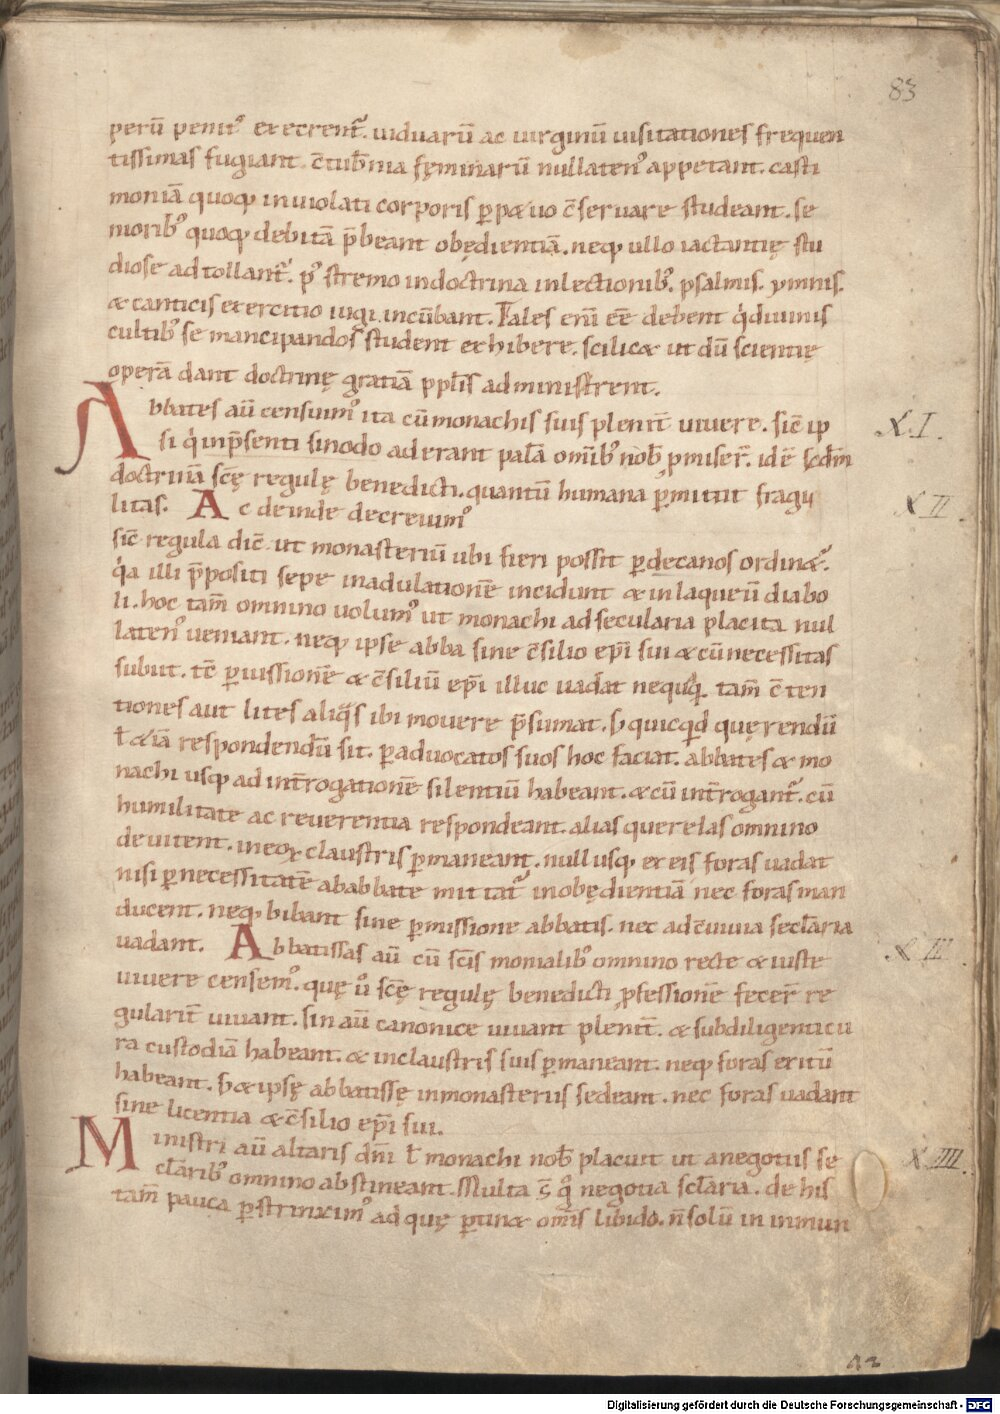 83
perū penit᷒ execrent᷑. uiduarū ac uirginū uisitationes frequen
tissimas fugiant. c̄tub̄nia fęminarū nullaten᷒ appetant. casti
moniā quoq; inuiolati corporis ꝑpetuo c̄seruare studeant. se
niorib᷒ quoq; debitā p̄beant obędientiā. neq; ullo iactantię stu
diose adtollant᷑. p᷒stremo in doctrina in lectionib᷒. psalmis. ymnis.
& canticis exercitio iugi incūbant. Tales eni̅ ee̅ debent q̍ diuinis
cultib᷒ se mancipandos student exhibere. scilic& ut dū scientię
operā dant doctrinę gratiā pp̄lis administrent.
Abbates aū censuim᷒ ita cū monachis suis plenit̄ uiuere. sic̄ ip
X.I.
si q̍ in p̄senti sinodo aderant palā om̄ib᷒ nob̄ ꝓmiser̄. idē scd̄m
doctrinā sc̄ę regulę benedicti. quantū humana ꝑmittit fragi
XII.
litas. Ac deinde decreuim᷒
sic̄ regula dic̄. ut monasteriū ubi fieri possit ꝑ decanos ordin&᷑.
q̍a illi p̄positi sepe in adulationē incidunt & in laqueū diabo
li. hoc tam̄ omnino uolum᷒ ut monachi ad secularia placita nul
laten᷒ ueniant. neq; ipse abba sine c̄silio ep̄i sui & cū necessitas
subit. tc̄ ꝑ iussionē & c̄siliū ep̄i illuc uadat nequq̄. tam̄ c̄ten
tiones aut lites aliq̍s ibi mouere p̄sumat. s; quicqd̍ quęrendū
ł &iā respondendū sit. ꝑ aduocatos suos hoc faciat. abbates & mo
nachi usq; ad int̄rogationē silentiū habeant. & cū int̄rogant᷑. cū
humilitate ac reuerentia respondeant. alias querelas omnino
deuitent. in eoꝝ claustris ꝑmaneant. nullusq; ex eis foras uadat
nisi ꝑ necessitatē ab abbate mittat᷑ in obędientiā nec foras man
ducent. neq; bibant sine ꝑmissione abbatis. nec ad c̄uiuia secl̄aria
uadant. Abbatissas aū cū sc̄is monialib᷒ omnino recte & iuste
XIII.
uiuere censem᷒. quę u̍ sc̄ę regulę benedicti ꝓfessionē fecer̄ re
gularit̄ uiuant. sin aū canonice uiuant plenit̄. & sub diligenti cu
ra custodiā habeant. & in claustris suis ꝑmaneant. neq; foras exitū
habeant. s; & ipsę abbatissę in monasteriis sedeant. nec foras uadant
sine licentia & c̄silio ep̄i sui.
Ministri aū altaris dn̄i ł monachi nob̄ placuit ut a negotiis se
XIIII.
cl̄arib᷒ omnino abstineant. Multa s̄ q̍ negotia scl̄aria. de his
tam̄ pauca ꝑstrinxim᷒ ad quę ꝑtin& om̄is libido. n̄ solū in inmun
Digitalisierung gefördert durch die Deutsche Forschungsgemeinschaft - DFG